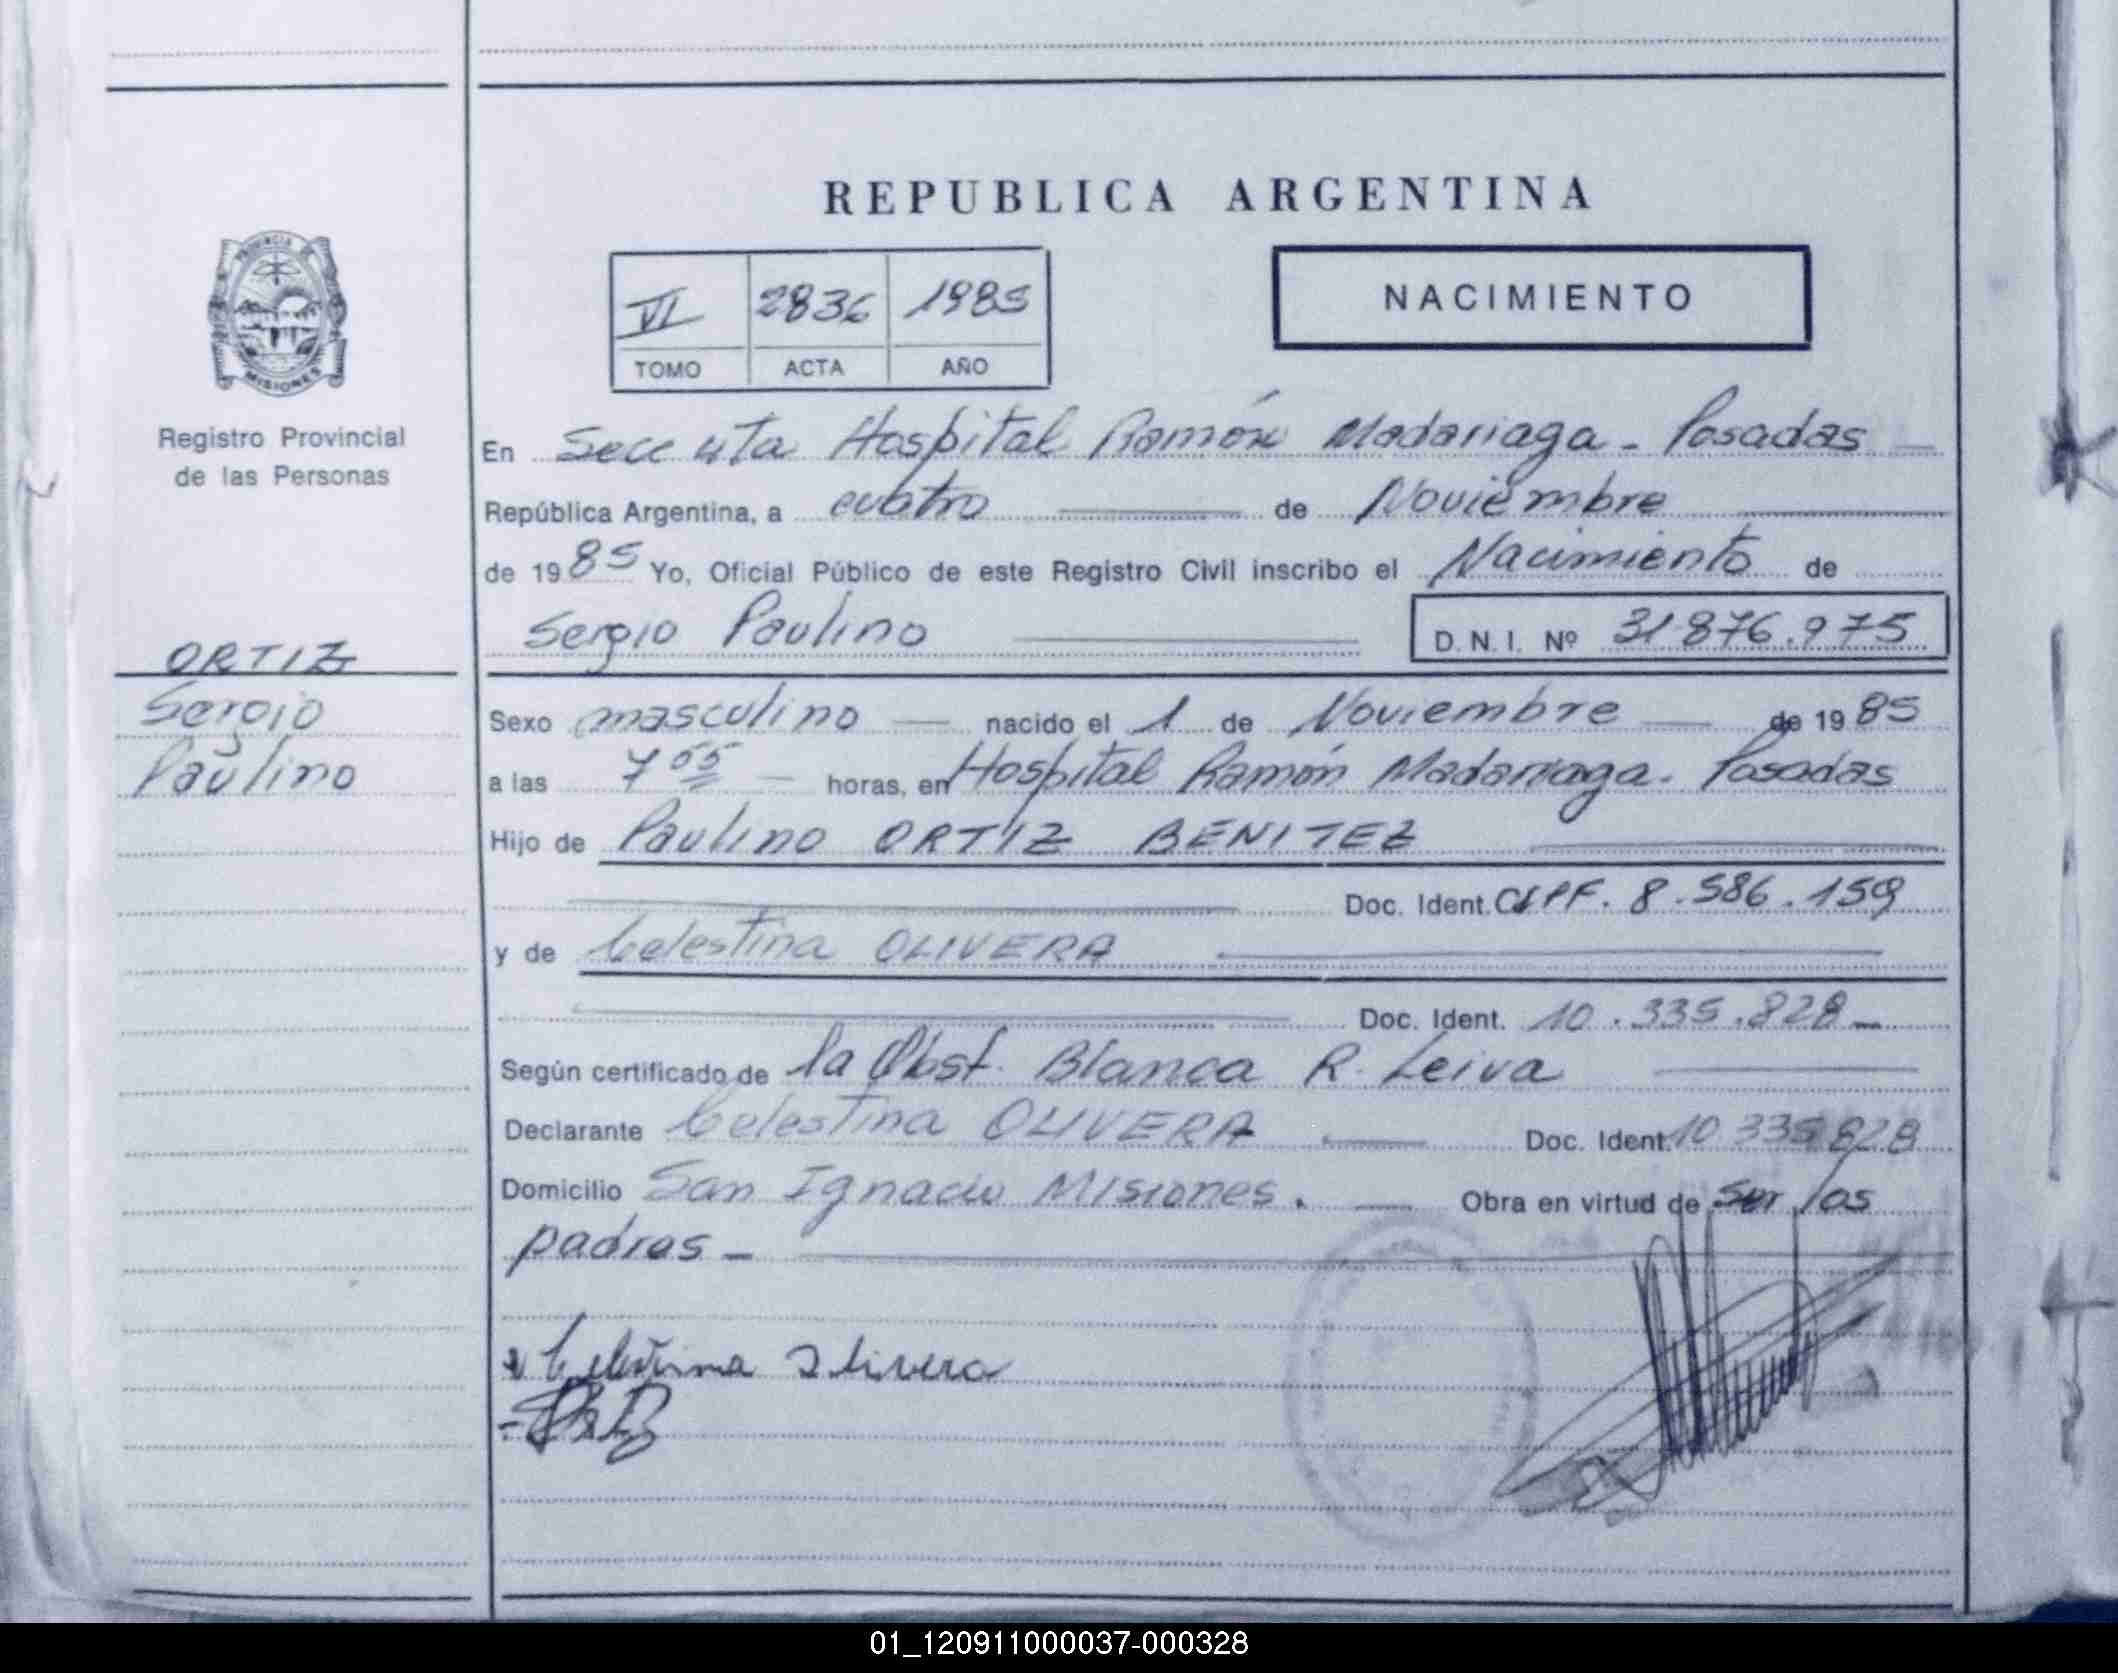 REPUBLICA ARGENTINA
PROVINCIA
MISIONES
Registro Provincial
de las Personas
VI 2836 1985
TOMO ACTA AÑO
NACIMIENTO
En Secc 4ta Hospital Ramón Madariaga - Posadas
República Argentina, a cuatro de Noviembre
de 1985 Yo, Oficial Público de este Registro Civil inscribo el Nacimiento de
Sergio Paulino D.N.I. Nº 31876.975
ORTIZ
Sergio
Paulino
Sexo masculino nacido el 1 de Noviembre de 1985
a las 7 55 horas, en Hospital Ramón Madariaga - Posadas
Hijo de Paulino ORTIZ BENITEZ
Doc. Ident. CIPF. 8.586.159
y de Celestina OLIVERA
Doc. Ident. 10.335.828
Según certificado de la Obst. Blanca R. Leiva
Declarante Celestina OLIVERA Doc. Ident. 10 335828
Domicilio San Ignacio Misiones. Obra en virtud de ser los
padres -
Celestina Olivera
01_120911000037-000328